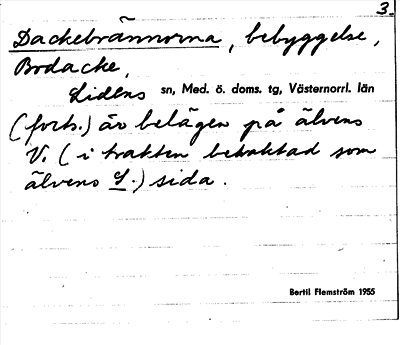 3.
Dackebrännorna, bebyggelse,
Bodacke,
Lidens sn, Med. ö. doms. tg, Västernorrl. län
(forts.) är belägen på älvens
V. (i trakten betraktad som
älvens S.) sida.
Bertil Flemström 1955